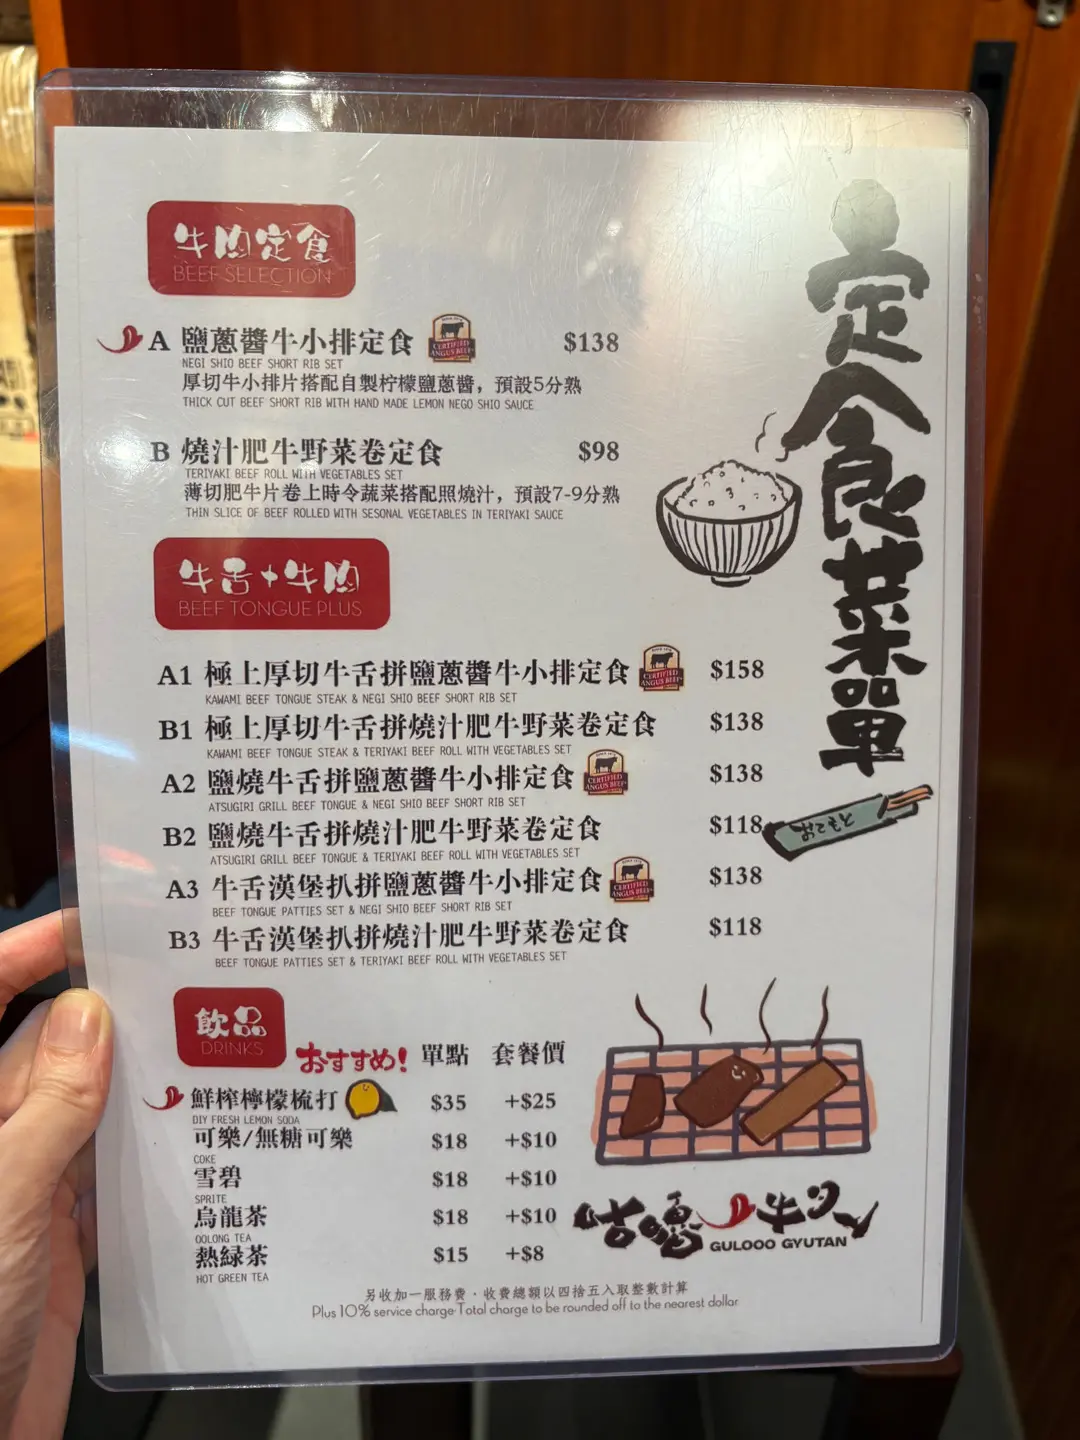 定食菜單
牛肉定食
BEEF SELECTION
A 鹽蔥醬牛小排定食 $138
CERTIFIED ANGUS BEEF
NEGI SHIO BEEF SHORT RIB SET
厚切牛小排片搭配自製柠檬鹽蔥醬，預設5分熟
THICK CUT BEEF SHORT RIB WITH HAND MADE LEMON NEGO SHIO SAUCE
B 燒汁肥牛野菜卷定食 $98
TERIYAKI BEEF ROLL WITH VEGETABLES SET
薄切肥牛片卷上時令蔬菜搭配照燒汁，預設7-9分熟
THIN SLICE OF BEEF ROLLED WITH SESONAL VEGETABLES IN TERIYAKI SAUCE
牛舌+牛肉
BEEF TONGUE PLUS
A1 極上厚切牛舌拼鹽蔥醬牛小排定食 $158
CERTIFIED ANGUS BEEF
KAWAMI BEEF TONGUE STEAK & NEGI SHIO BEEF SHORT RIB SET
B1 極上厚切牛舌拼燒汁肥牛野菜卷定食 $138
KAWAMI BEEF TONGUE STEAK & TERIYAKI BEEF ROLL WITH VEGETABLES SET
A2 鹽燒牛舌拼鹽蔥醬牛小排定食 $138
CERTIFIED ANGUS BEEF
ATSUGIRI GRILL BEEF TONGUE & NEGI SHIO BEEF SHORT RIB SET
B2 鹽燒牛舌拼燒汁肥牛野菜卷定食 $118
おてもと
ATSUGIRI GRILL BEEF TONGUE & TERIYAKI BEEF ROLL WITH VEGETABLES SET
A3 牛舌漢堡扒拼鹽蔥醬牛小排定食 $138
CERTIFIED ANGUS BEEF
BEEF TONGUE PATTIES SET & NEGI SHIO BEEF SHORT RIB SET
B3 牛舌漢堡扒拼燒汁肥牛野菜卷定食 $118
BEEF TONGUE PATTIES SET & TERIYAKI BEEF ROLL WITH VEGETABLES SET
飲品
DRINKS
おすすめ! 單點 套餐價
鮮榨檸檬梳打 $35 +$25
DIY FRESH LEMON SODA
可樂/無糖可樂 $18 +$10
COKE
雪碧 $18 +$10
SPRITE
烏龍茶 $18 +$10
OOLONG TEA
熱緑茶 $15 +$8
HOT GREEN TEA
咕嚕牛タン
GULOOO GYUTAN
另收加一服務費·收費總額以四捨五入取整數計算
Plus 10% service charge·Total charge to be rounded off to the nearest dollar